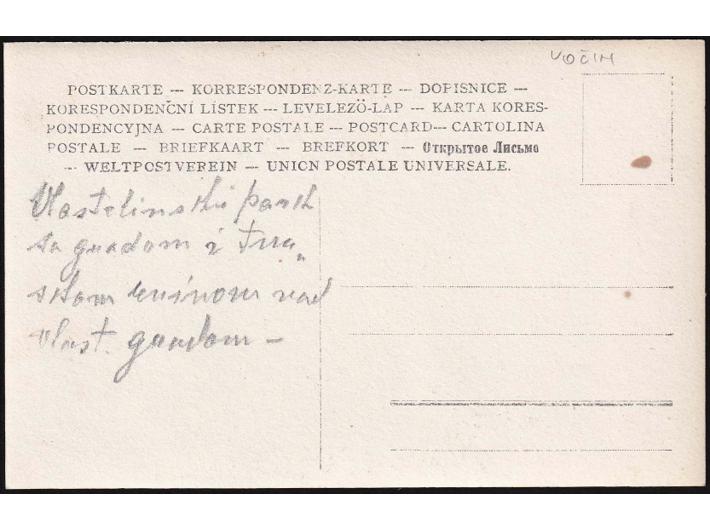 VOČIN
POSTKARTE — KORRESPONDENZ-KARTE — DOPISNICE —
KORESPONDENČNÍ LÍSTEK — LEVELEZŐ-LAP — KARTA KORES-
PONDENCYJNA — CARTE POSTALE — POSTCARD — CARTOLINA
POSTALE — BRIEFKAART — BREFKORT — Открытое Письмо
— WELTPOSTVEREIN — UNION POSTALE UNIVERSALE.
Vlastelinski park
sa gradom i tur„
skom ruinom nad
vlast. gradom —